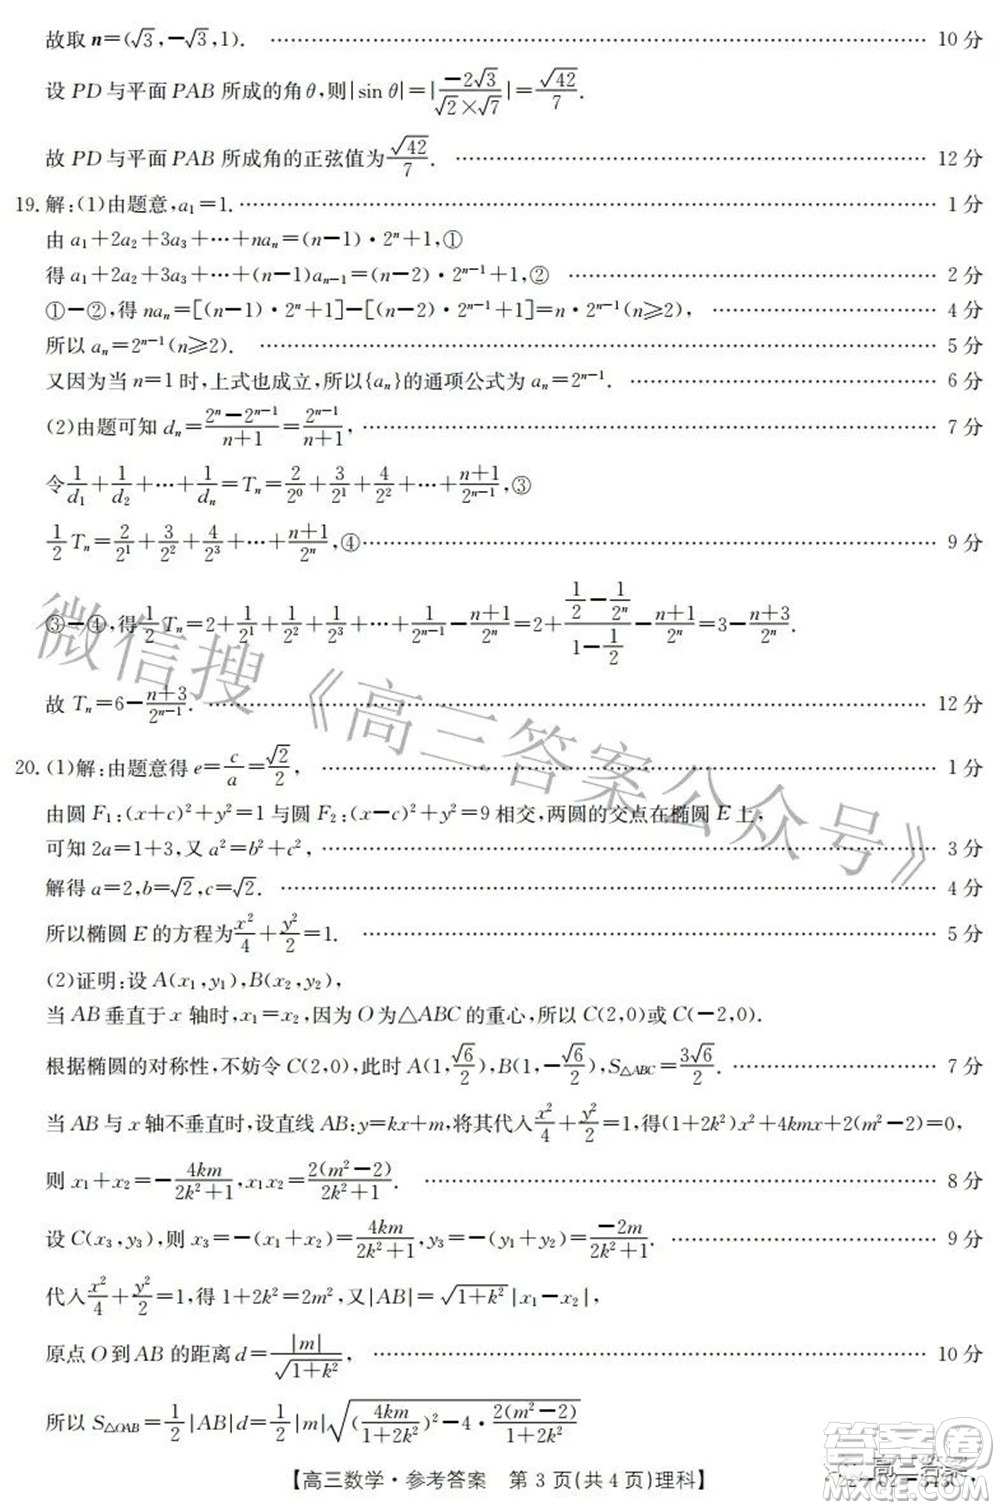 故取 n=(√3,-√3,1). …… 10 分
设 PD 与平面 PAB 所成的角 θ,则|sin θ|=|(-2√3)/(√2×√7)|=√42/7.
故 PD 与平面 PAB 所成角的正弦值为√42/7. …… 12 分
19. 解:(1)由题意,a₁=1. …… 1 分
由 a₁+2a₂+3a₃+…+naₙ=(n-1)·2ⁿ+1,①
得 a₁+2a₂+3a₃+…+(n-1)aₙ₋₁=(n-2)·2ⁿ⁻¹+1,② …… 2 分
①-②,得 naₙ=[(n-1)·2ⁿ+1]-[(n-2)·2ⁿ⁻¹+1]=n·2ⁿ⁻¹(n≥2), …… 4 分
所以 aₙ=2ⁿ⁻¹(n≥2). …… 5 分
又因为当 n=1 时,上式也成立,所以{aₙ}的通项公式为 aₙ=2ⁿ⁻¹. …… 6 分
(2)由题可知 dₙ=(2ⁿ-2ⁿ⁻¹)/(n+1)=2ⁿ⁻¹/(n+1), …… 7 分
令1/d₁+1/d₂+…+1/dₙ=Tₙ=2/2⁰+3/2¹+4/2²+…+(n+1)/2ⁿ⁻¹,③
1/2 Tₙ=2/2¹+3/2²+4/2³+…+(n+1)/2ⁿ,④ …… 9 分
③-④,得1/2 Tₙ=2+1/2¹+1/2¹+1/2³+…+1/2ⁿ⁻¹-(n+1)/2ⁿ=2+(1/2-1/2ⁿ)/(1-1/2)-(n+1)/2ⁿ=3-(n+3)/2ⁿ.
故 Tₙ=6-(n+3)/2ⁿ⁻¹. …… 12 分
20. (1)解:由题意得 e=c/a=√2/2, …… 1 分
由圆 F₁:(x+c)²+y²=1 与圆 F₂:(x-c)²+y²=9 相交,两圆的交点在椭圆 E 上,
可知 2a=1+3,又 a²=b²+c², …… 3 分
解得 a=2,b=√2,c=√2. …… 4 分
所以椭圆 E 的方程为x²/4+y²/2=1. …… 5 分
(2)证明:设 A(x₁,y₁),B(x₂,y₂),
当 AB 垂直于 x 轴时,x₁=x₂,因为 O 为△ABC 的重心,所以 C(2,0)或 C(-2,0).
根据椭圆的对称性,不妨令 C(2,0),此时 A(1,√6/2),B(1,-√6/2),S△ABC=3√6/2. …… 7 分
当 AB 与 x 轴不垂直时,设直线 AB:y=kx+m,将其代入x²/4+y²/2=1,得(1+2k²)x²+4kmx+2(m²-2)=0,
则 x₁+x₂=-4km/(2k²+1),x₁x₂=2(m²-2)/(2k²+1). …… 8 分
设 C(x₃,y₃),则 x₃=-(x₁+x₂)=4km/(2k²+1),y₃=-(y₁+y₂)=-2m/(2k²+1). …… 9 分
代入x²/4+y²/2=1,得 1+2k²=2m²,又|AB|=√(1+k²)|x₁-x₂|,
原点 O 到 AB 的距离 d=|m|/√(1+k²), …… 10 分
所以 S△OAB=1/2|AB|d=1/2|m|√((4km/(1+2k²))²-4·2(m²-2)/(1+2k²))
【高三数学·参考答案 第 3 页(共 4 页)理科】
微信搜《高三答案公众号》
答案圈
高三答案